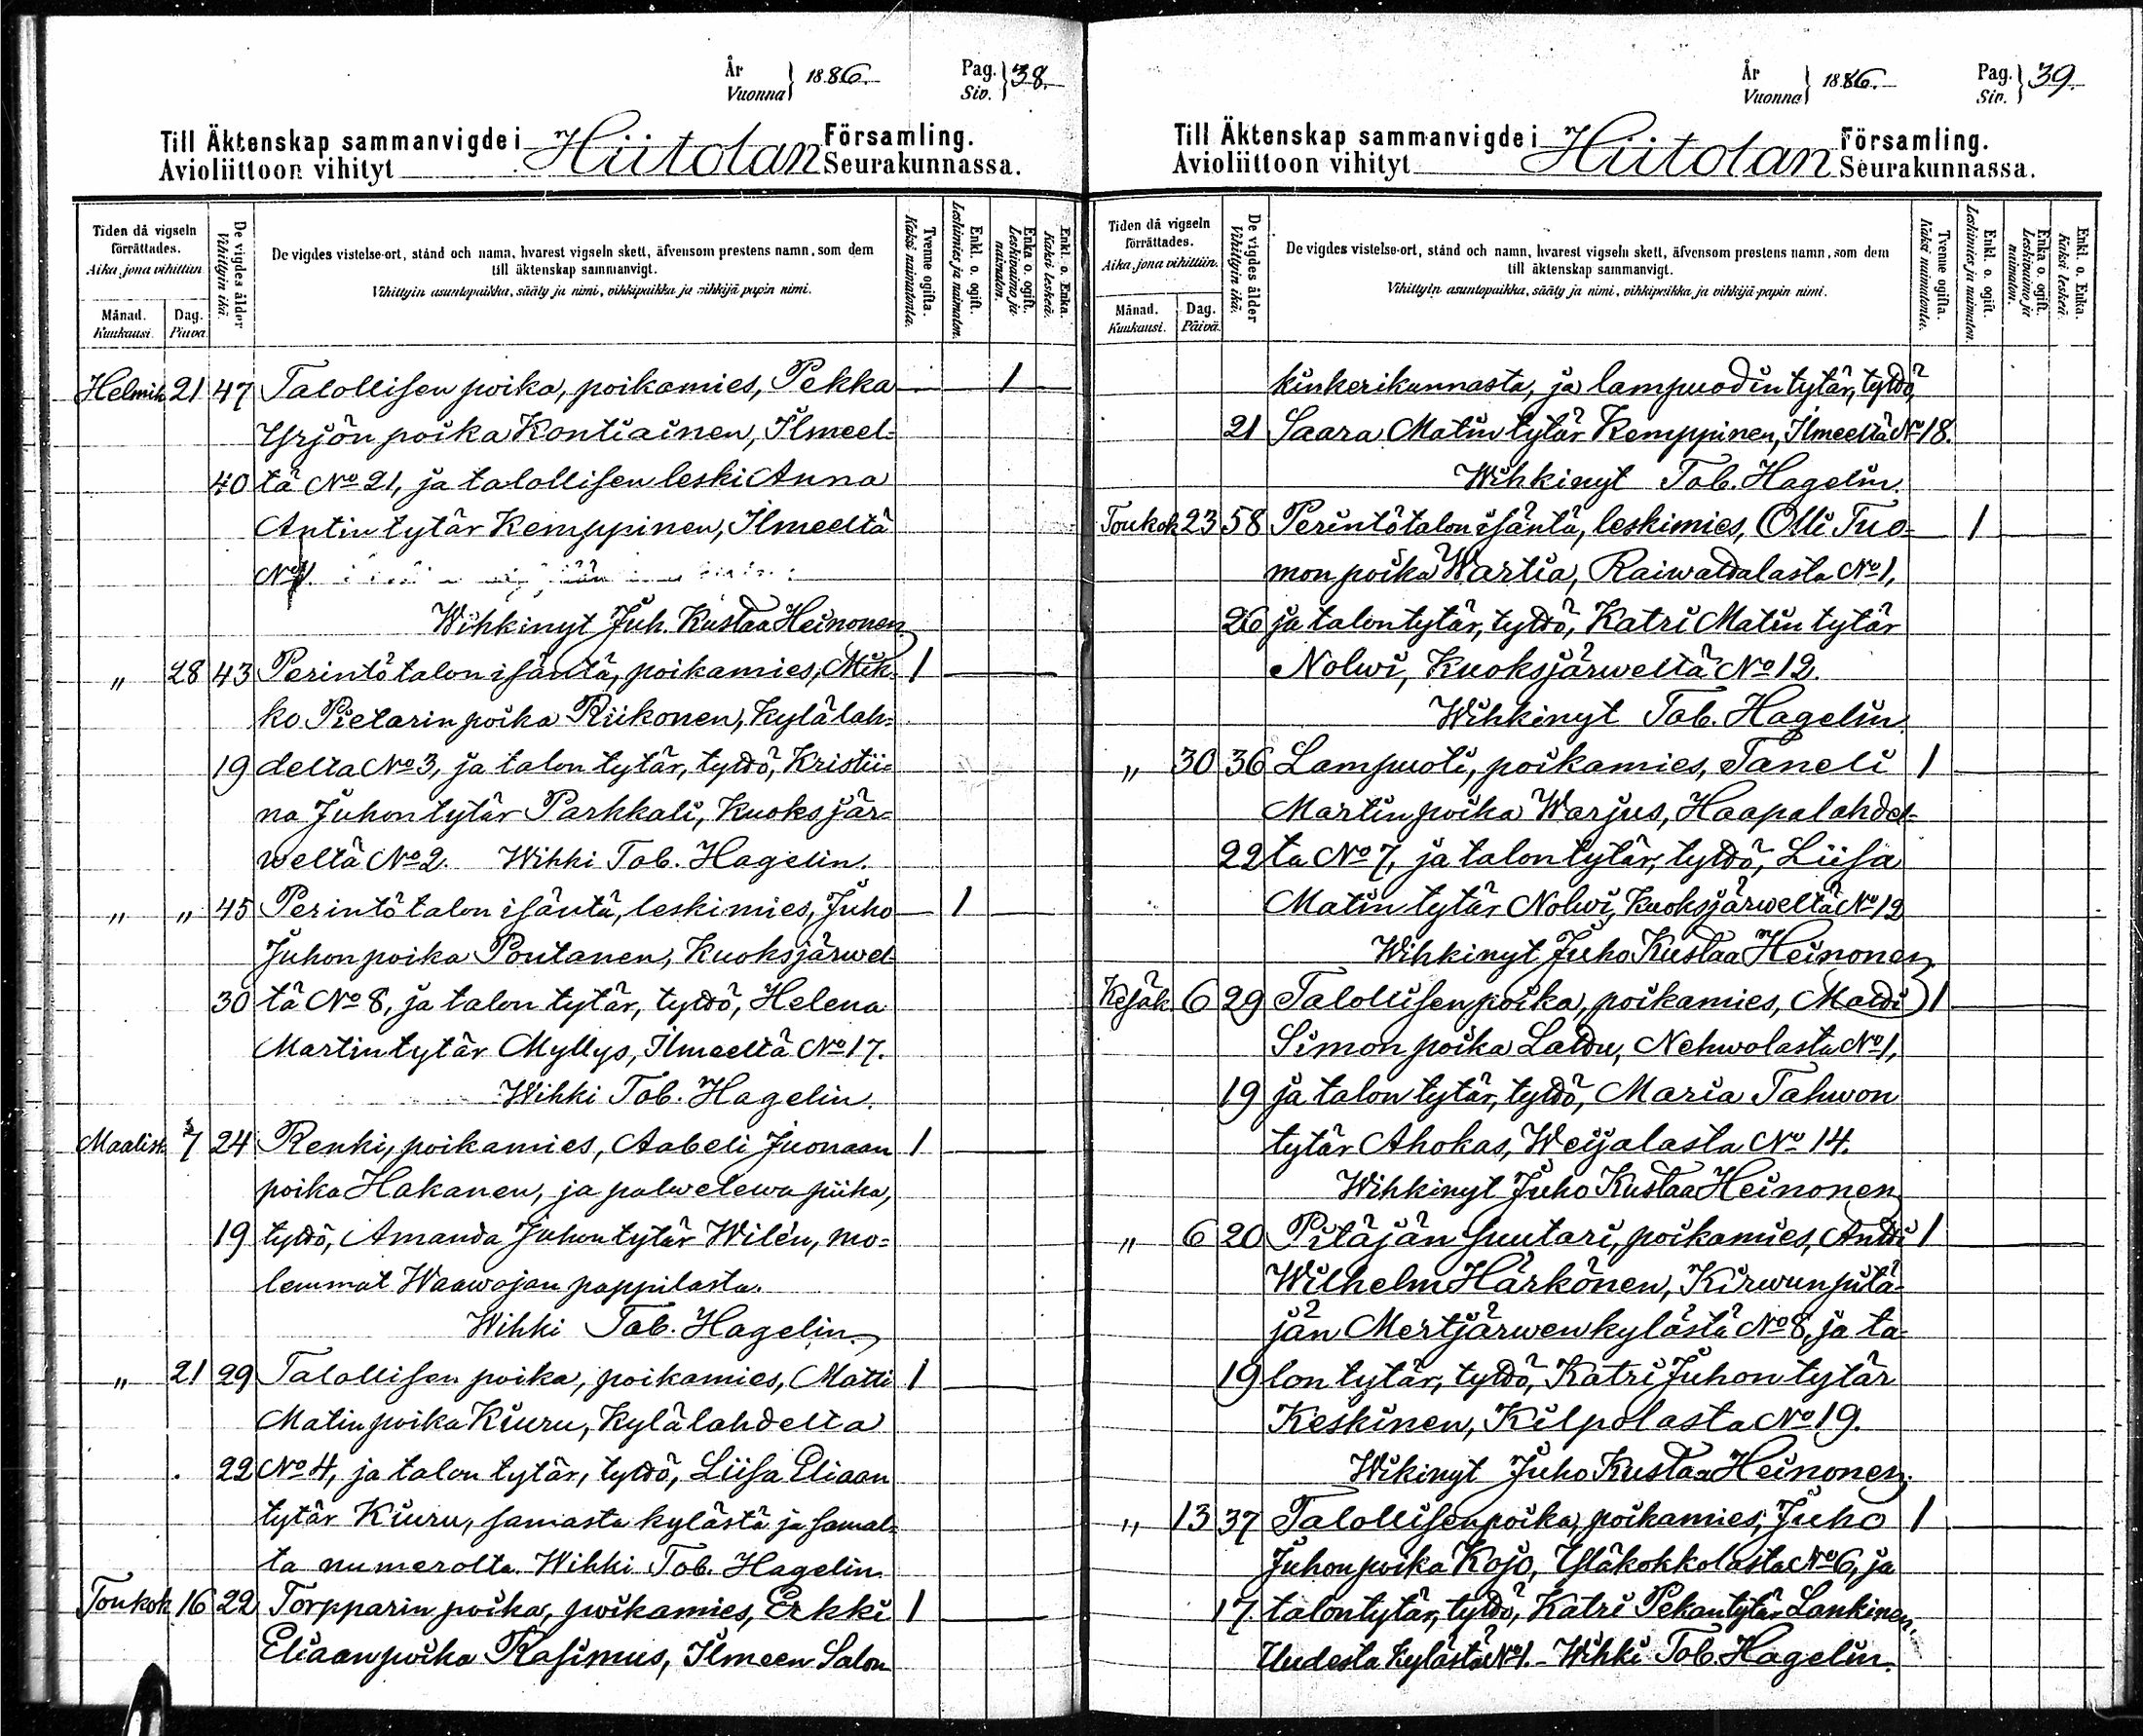 År
Vuonna } 1886.
Pag.
Siv. } 38.
Till Äktenskap sammanvigde i Hiitolan Församling.
Avioliittoon vihityt Seurakunnassa.
Tiden då vigseln förrättades.
Aika, jona vihittiin.
Månad.
Kuukausi.
Dag.
Päivä.
De vigdes ålder
Vihittyin ikä.
De vigdes vistelse-ort, stånd och namn, hvarest vigseln skett, äfvensom prestens namn, som dem
till äktenskap sammanvigt.
Vihittyin asuntopaikka, sääty ja nimi, vihkipaikka ja vihkijä papin nimi.
Tvenne ogifta.
Kaksi naimatonta.
Enkl. o. ogift.
Leskimies ja naimaton.
Enka o. ogift.
Leskivaimo ja naimaton.
Enkl. o. Enka.
Kaksi leskeä.
Helmik 21 47 Talollisen poika, poikamies, Pekka 1
Yrjön poika Kontiainen, Ilmeel-
40 tä No 21, ja talollisen leski Anna
Antin tytär Kemppinen, Ilmeeltä
No 1.
Wihkinyt Juh. Kustaa Heinonen
" 28 43 Perintötalon isäntä, poikamies, Mik- 1
ko Pietarin poika Riikonen, Kylälah-
19 delta No 3, ja talon tytär, tyttö, Kristii-
na Juhon tytär Parkkali, Kuoksjär-
weltä No 2. Wihki Tob. Hagelin.
" " 45 Perintötalon isäntä, leskimies, Juho 1
Juhon poika Pontanen, Kuoksjärwel-
30 tä No 8, ja talon tytär, tyttö, Helena
Martin tytär Myllys, Ilmeeltä No 17.
Wihki Tob. Hagelin.
Maalisk 7 24 Renki, poikamies, Aabeli Juonaan 1
poika Hakanen, ja palwelewa piika,
19 tyttö, Amanda Juhon tytär Wilén, mo-
lemmat Waawojan pappilasta.
Wihki Tob. Hagelin.
" 21 29 Talollisen poika, poikamies, Matti 1
Matin poika Kiuru, Kylälahdelta
22 No 4, ja talon tytär, tyttö, Liisa Eliaan
tytär Kiuru, samasta kylästä ja samal-
ta numerolta. Wihki Tob. Hagelin.
Toukok 16 22 Torpparin poika, poikamies, Erkki 1
Eliaan poika Rasimus, Ilmeen Salon
År
Vuonna } 1886.
Pag.
Siv. } 39.
Till Äktenskap sammanvigde i Hiitolan Församling.
Avioliittoon vihityt Seurakunnassa.
Tiden då vigseln förrättades.
Aika, jona vihittiin.
Månad.
Kuukausi.
Dag.
Päivä.
De vigdes ålder
Vihittyin ikä.
De vigdes vistelse-ort, stånd och namn, hvarest vigseln skett, äfvensom prestens namn, som dem
till äktenskap sammanvigt.
Vihittyin asuntopaikka, sääty ja nimi, vihkipaikka ja vihkijä papin nimi.
Tvenne ogifta.
Kaksi naimatonta.
Enkl. o. ogift.
Leskimies ja naimaton.
Enka o. ogift.
Leskivaimo ja naimaton.
Enkl. o. Enka.
Kaksi leskeä.
kinkerikunnasta, ja lampuodin tytär, tyttö,
21 Saara Matin tytär Kemppinen, Ilmeeltä No 18.
Wihkinyt Tob. Hagelin.
Toukok 23 58 Perintötalon isäntä, leskimies, Olli Tuo- 1
mon poika Wartia, Raiwattalasta No 1,
26 ja talon tytär, tyttö, Katri Matin tytär
Nolwi, Kuoksjärweltä No 12.
Wihkinyt Tob. Hagelin.
" 30 36 Lampuoti, poikamies, Taneli 1
Martin poika Warjus, Haapalahdel-
22 ta No 7, ja talon tytär, tyttö, Liisa
Matin tytär Nolwi, Kuoksjärweltä No 12
Wihkinyt Juho Kustaa Heinonen
Kesäk 6 29 Talollisen poika, poikamies, Matti 1
Simon poika Lattu, Nehwolasta No 1,
19 ja talon tytär, tyttö, Maria Tahwon
tytär Ahokas, Weijalasta No 14.
Wihkinyt Juho Kustaa Heinonen
" 6 20 Pitäjän suutari, poikamies, Antti 1
Wilhelm Härkönen, Kirwun pitä-
jän Mertjärwen kylästä No 8, ja ta-
19 lon tytär, tyttö, Katri Juhon tytär
Keskinen, Kilpolasta No 19.
Wikinyt Juho Kustaa Heinonen.
" 13 37 Talollisen poika, poikamies, Juho 1
Juhon poika Kojo, Yläkokkolasta No 6, ja
17 talon tytär, tyttö, Katri Pekan tytär Lankinen,
Uudesta kylästä No 1. - Wihki Tob. Hagelin.